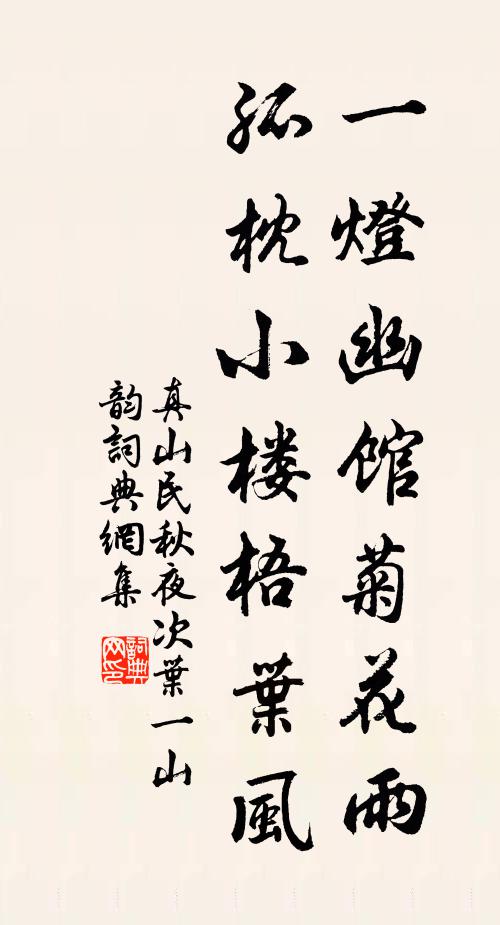 一燈幽館菊花雨
孤枕小楼梧葉風
真山民秋夜次葉一山
韵詞典網集
詞典網印